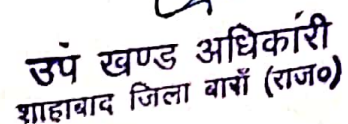 उप खण्ड अधिकारी
शाहाबाद जिला बाराँ (राज०)